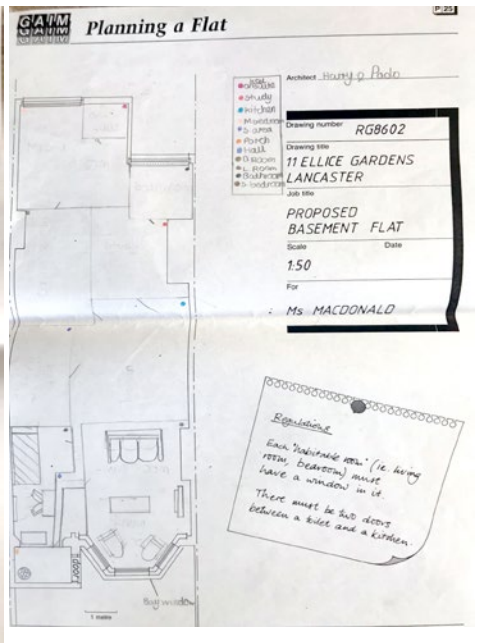 GAIM
Planning a Flat
P 25
key
onsuite
study
kitchen
M bedroom
S area
Porch
Hall
D Room
L Room
Bathroom
S bedroom
Architect Harry
Drawing number RG8602
Drawing title
11 ELLICE GARDENS
LANCASTER
Job title
PROPOSED
BASEMENT FLAT
Scale Date
1:50
For
Ms MACDONALD
Regulations
Each "habitable room" (ie. living
room, bedroom) must
have a window in it.
There must be two doors
between a toilet and a kitchen.
door
Bay window
1 metre